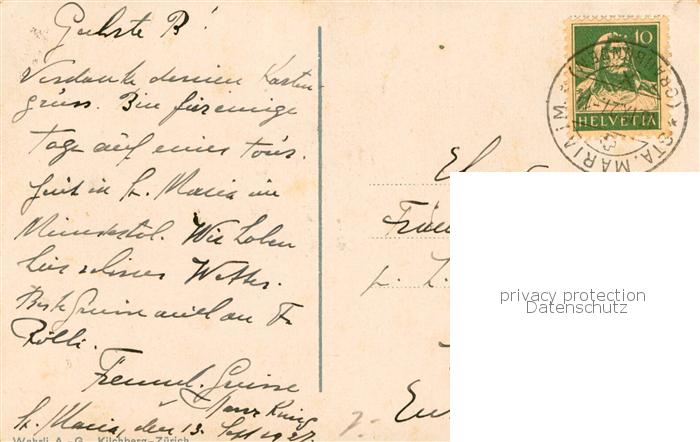 Geehrte B!
Verdanke deinen Karten-
gruss. Bin für einige
Tage auf einer Tour.
Heut in St. Maria im
Münstertal. Wir haben
hier schönes Wetter.
Beste Grüsse auch an Fr.
Freundl. Grüsse
St. Maria, den 13. Sept 1927.
Wehrli A.-G., Kilchberg-Zürich
10
HELVETIA
STA. MARIA i. M.
(GRAUBÜNDEN)
privacy protection
Datenschutz